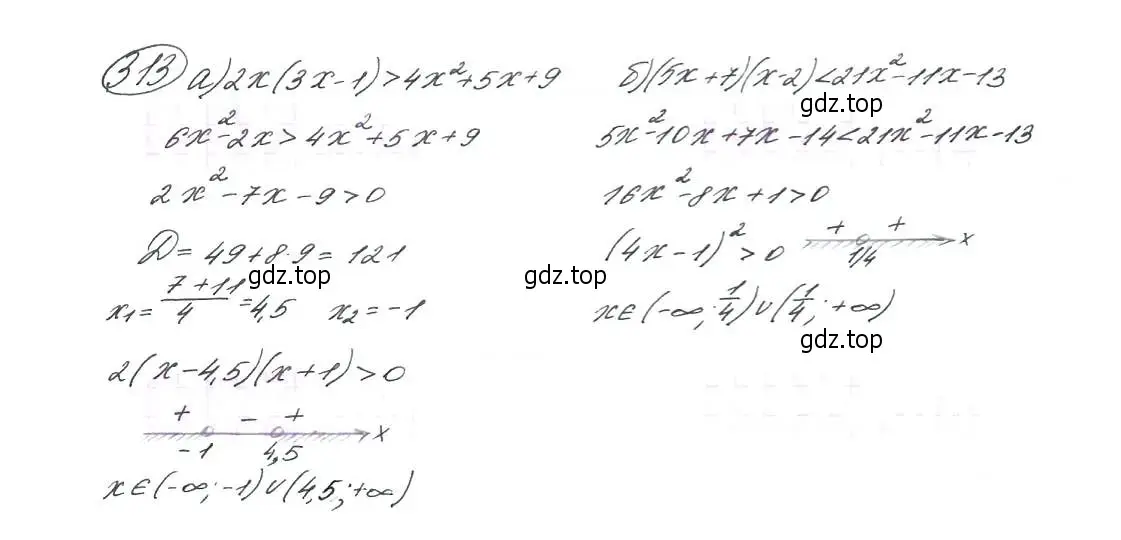 313 а) 2x(3x-1)>4x²+5x+9
6x²-2x>4x²+5x+9
2x²-7x-9>0
D=49+8·9=121
x₁=(7+11)/4=4,5 x₂=-1
2(x-4,5)(x+1)>0
+ - +
-1 4,5 x
x∈(-∞;-1)∪(4,5;+∞)
б) (5x+7)(x-2)<21x²-11x-13
gdz.top
5x²-10x+7x-14<21x²-11x-13
16x²-8x+1>0
(4x-1)²>0
+ +
1/4 x
gdz.top
x∈(-∞;1/4)∪(1/4;+∞)
gdz.top